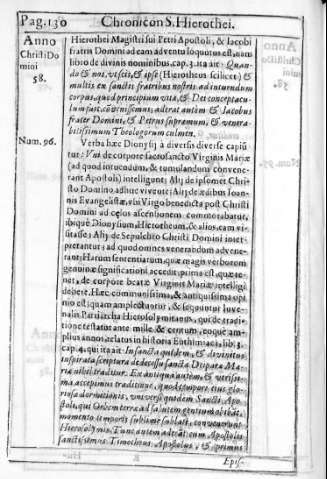 Pag. 130 Chronicon S. Hierothei.
Anno
Christi Do
mini
58.
Num. 96.
Hierothei Magistri sui Petri Apostoli, & Iacobi
fratris Domini ad eam adventu loquutus est, nam
libro de divinis nominibus, cap. 3. ita ait: Quan-
do & nos, ut scis, & ipse (Hierotheus scilicet) &
multis ex sanctis fratribus nostris ad intuendum
corpus, quod principium vitæ, & Dei conceptacu-
lum fuit, convenissemus, aderat autem & Iacobus
frater Domini, & Petrus supremum, & venera-
bilissimum Theologorum culmen.
Verba hæc Dionysij à diversis diverse capiũ
tur: Uni de corpore sacrosancto Virginis Mariæ
(ad quod intuendum, & tumulandum convene-
rant Apostoli) intelligunt; Alij de ipsomet Chri-
sto Domino adhuc vivente; Alij de ædibus Ioan-
nis Evangelistæ, ubi Virgo benedicta post Christi
Domini ad cęlos ascensionem commorabatur,
ibique Dionysium, Hierotheum, & alios, eam vi-
sitasse; Alij de Sepulchro Christi Domini inter-
pretantur; ad quod omnes venerandum advene-
rant; Harum sententiarum, quæ magis verborem
genuinæ significationi accedit, prima est, quæ te-
net, de corpore beatæ Virginis Mariæ intelligi
debere. Hæc communissima, & antiquissima opi-
nio est;
cap. 4. qui ita ait: In sancta quidem, & divinitus
inspirata scriptura de decessu sanctæ Dei paræ Ma-
riæ nihil traditur. Ex antiqua autem, & verissi-
ma accepimus traditione, quod tempore eius glo-
riosæ dormitionis, universi quidem Sancti Apo-
stoli, qui Orbem terræ ad salutem gentium obibãt,
momento temporis sublime sublati, convenerunt
Hierosolymis. Tunc autem aderãt cum Apostolis
sanctissimus Timotheus Apostolus, & primus
Epis-